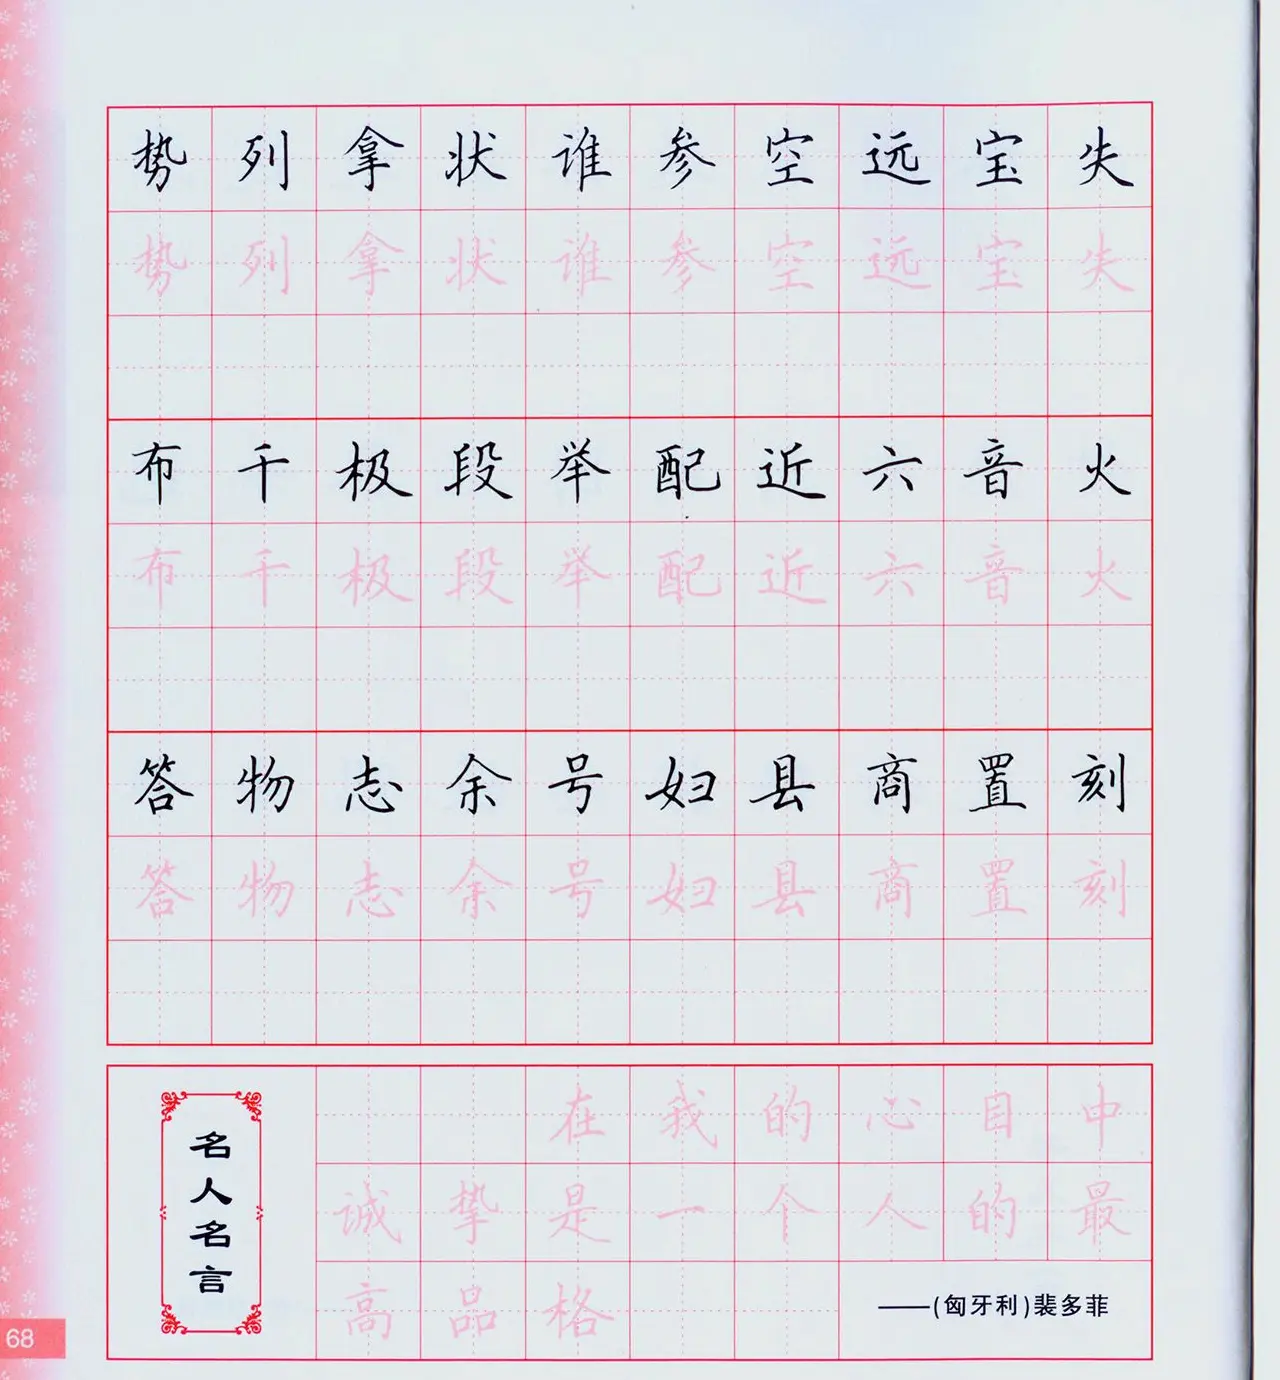 势列拿状谁参空远宝失
势列拿状谁参空远宝失
布千极段举配近六音火
布千极段举配近六音火
答物志余号妇县商置刻
答物志余号妇县商置刻
名人名言
在我的心目中
诚挚是一个人的最
高品格
——(匈牙利)裴多菲
68